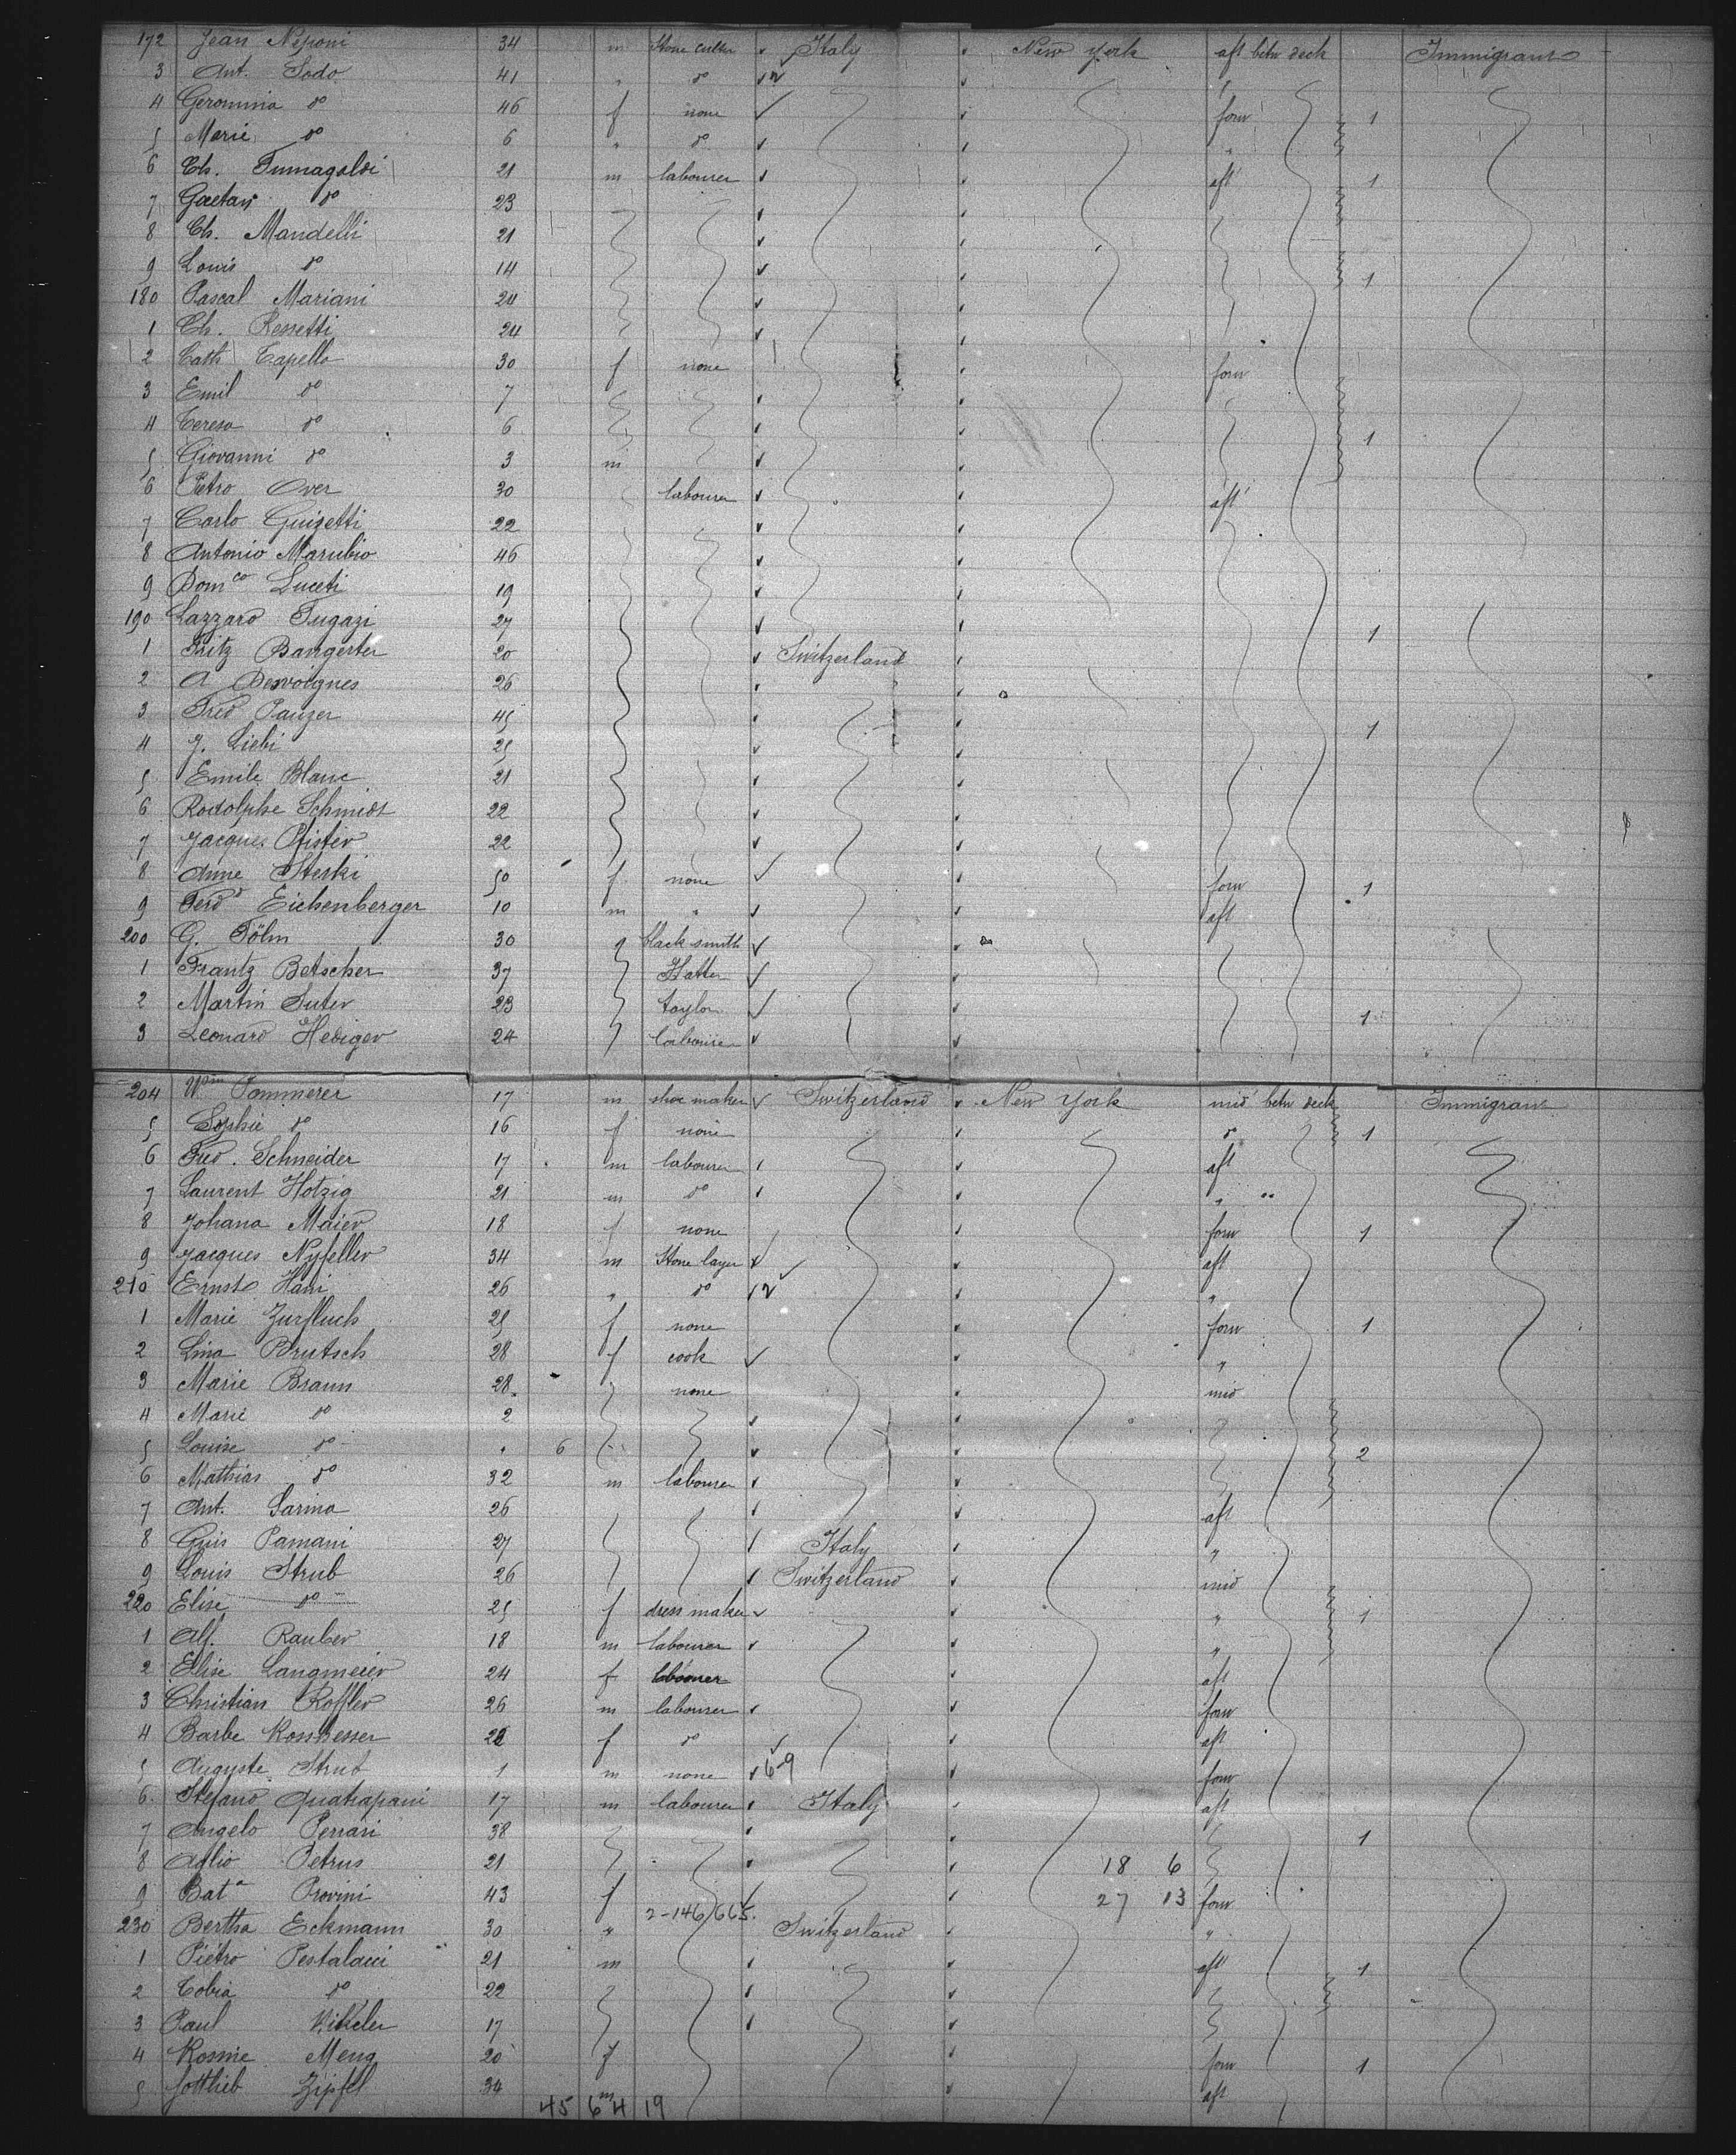 172 Jean Neponi 34 m Stone cutter Italy New York aft betw deck Immigrant
3 Ant. Sodo 41 " do
4 Geromina do 46 f none forw 1
5 Marie do 6 " do "
6 Ch. Fumagaldi 21 m labourer aft 1
7 Gaetan do 23
8 Ch. Mandelli 21
9 Louis do 14 1
180 Pascal Mariani 24
1 Ch. Rossetti 24
2 Cath Capello 30 f none forw
3 Emil do 7
4 Teresa do 6 1
5 Giovanni do 3 m
6 Pietro Over 30 labourer aft
7 Carlo Guizetti 22
8 Antonio Marubio 46
9 Domco Luceti 19
190 Lazzaro Fugazi 27 1
1 Fritz Bangerter 20 Switzerland
2 A Desvoignes 26
3 Fred Panzer 45 1
4 J. Liebi 25
5 Emile Blanc 21
6 Rodolphe Schmidt 22
7 Jacques Pfister 22
8 Anne Sterki 50 f none forw 1
9 Ferdd Eichenberger 10 m " aft
200 G. Tölm 30 black smith
1 Frantz Betscher 37 Hatter
2 Martin Suter 23 taylor 1
3 Leonard Hediger 24 labourer
204 Wm Pommerer 17 m shoe maker Switzerland New York mid betw deck Immigrant
5 Sophie do 16 f none do 1
6 Fred. Schneider 17 m labourer aft
7 Laurent Hotzig 21 m do "
8 Johana Maier 18 f none forw 1
9 Jacques Nyfeller 34 m Stone layer aft
210 Ernst Häni 26 " do "
1 Marie Zurfluch 25 f none forw 1
2 Lina Brutsch 28 f cook "
3 Marie Braun 28 none mid
4 Marie do 2
5 Louise do 6 2
6 Mathias do 32 m labourer
7 Ant. Sarina 26 aft
8 Guis Pamani 27 Italy "
9 Louis Strub 26 Switzerland mid
220 Elise do 25 f dress maker " 1
1 Alf. Rauber 18 m labourer "
2 Elise Langmeier 24 f labourer aft
3 Christian Roffler 26 m labourer forw
4 Barbe 22 f do aft
5 Auguste Strub 1 m none 6-9 forw
6 Stefano Quatrapani 17 m labourer Italy aft
7 Angelo Ferrari 38 1
8 Aglio Petrus 21 18 6
9 Bata Provini 43 f 27 13 forw
2-146/665.
230 Bertha Eckmann 30 " Switzerland "
1 Pietro Pestalacci 21 m aft 1
2 Tobia do 22
3 Paul Winkler 17
4 Rosine Meng 20 f forw 1
5 Gottlieb Zipfel 34 m aft
45 6 4 19